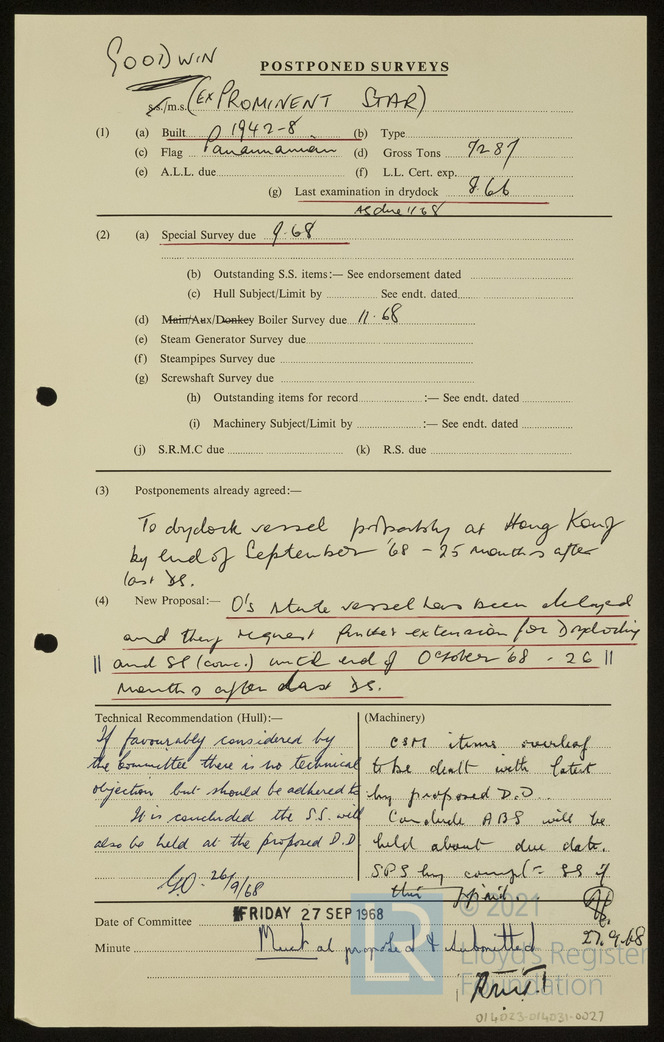 GOODWIN
POSTPONED SURVEYS
s.s./m.s. (EX PROMINENT STAR)
(1) (a) Built 1942-8 (b) Type
(c) Flag Panamanian (d) Gross Tons 7287
(e) A.L.L. due (f) L.L. Cert. exp.
(g) Last examination in drydock 8.66
AS due 11 68
(2) (a) Special Survey due 9.68
(b) Outstanding S.S. items:— See endorsement dated
(c) Hull Subject/Limit by See endt. dated
(d) Main/Aux/Donkey Boiler Survey due 11.68
(e) Steam Generator Survey due
(f) Steampipes Survey due
(g) Screwshaft Survey due
(h) Outstanding items for record :— See endt. dated
(i) Machinery Subject/Limit by :— See endt. dated
(j) S.R.M.C due (k) R.S. due
(3) Postponements already agreed:—
To drydock vessel probably at Hong Kong
by end of September '68 - 25 months after
last DS.
(4) New Proposal:— O's state vessel has been delayed
and they request further extension for Drydocking
and SS (conc.) until end of October '68 - 26
months after last DS.
Technical Recommendation (Hull):—
If favourably considered by
the Committee there is no technical
objection but should be adhered to
It is concluded the S.S. will
also be held at the proposed D.D.
26/9/68
(Machinery)
CSM items overleaf
to be dealt with latest
by proposed D.D.
Conclude ABS will be
held about due date.
SPS by compl= SS if
this
27.9.68
Date of Committee FRIDAY 27 SEP 1968
Minute as proposed & submitted
LR
© 2021
Lloyd's Register
Foundation
014023-014031-0027